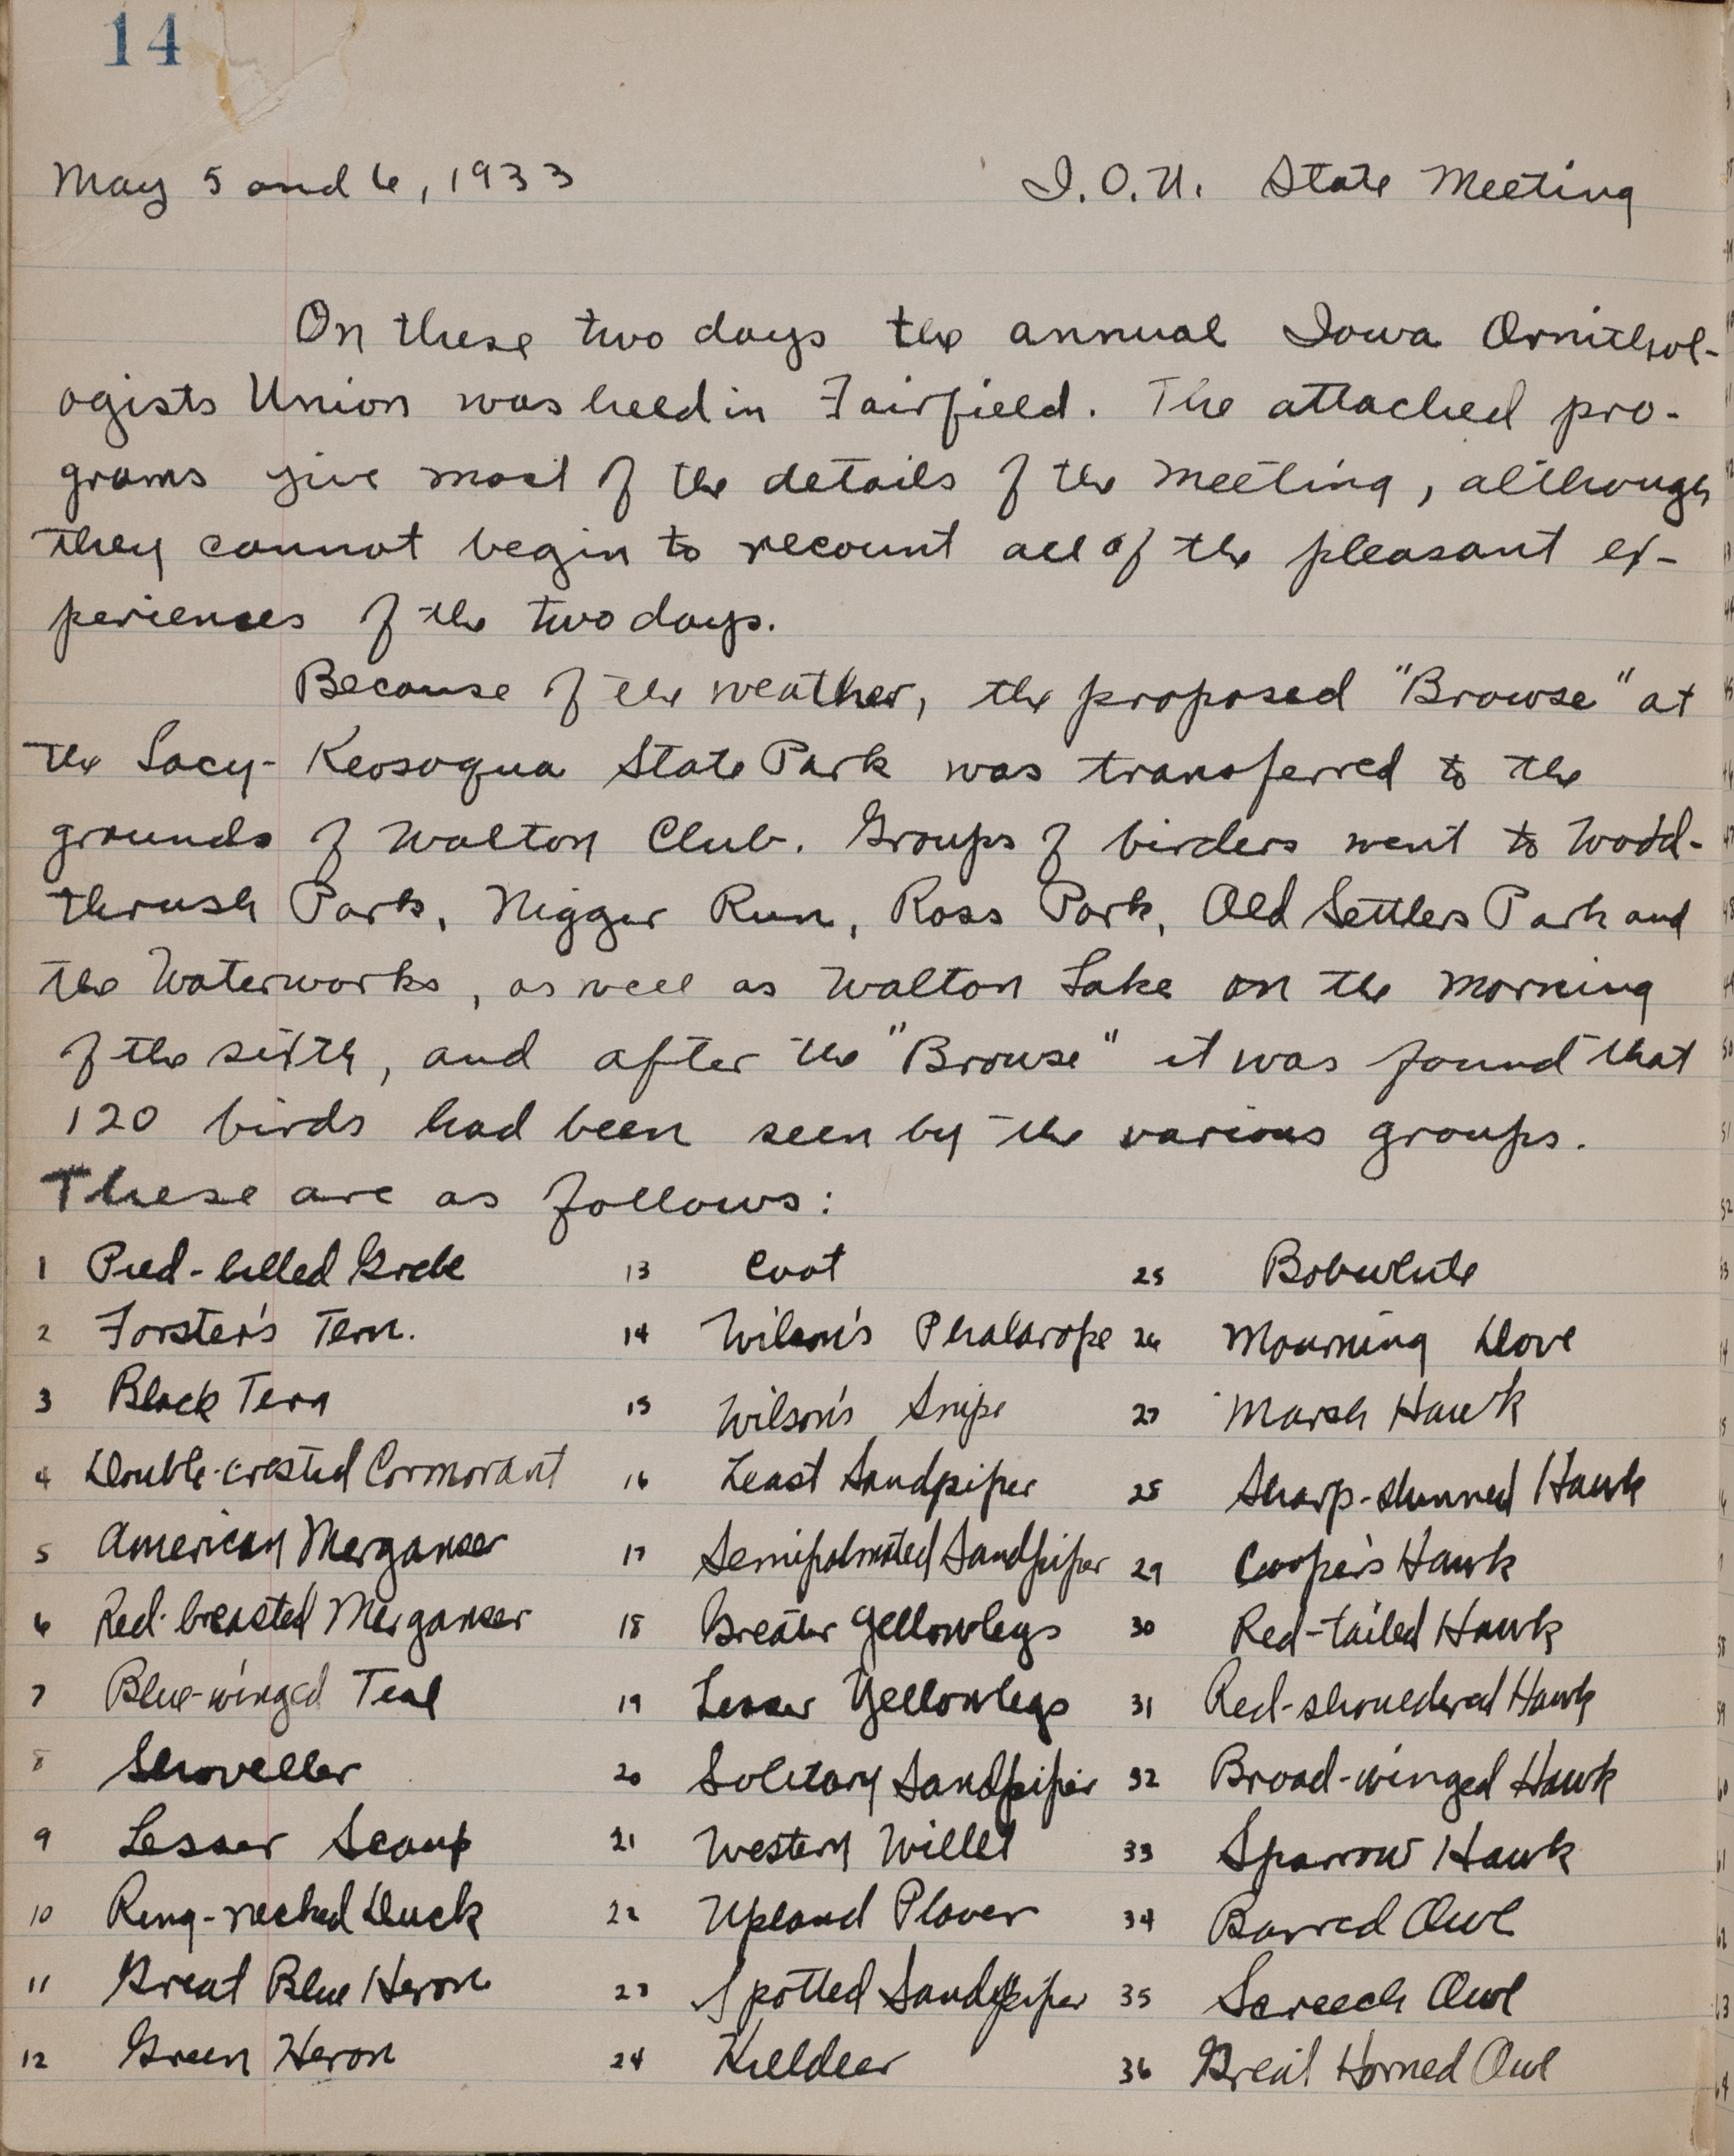 14
May 5 and 6, 1933 I.O.U. State Meeting
On these two days the annual Iowa Ornithol-
ogists Union was held in Fairfield. The attached pro-
grams give most of the details of the meeting, although
they cannot begin to recount all of the pleasant ex-
periences of the two days.
Because of the weather, the proposed "Browse" at
the Lacy-Keosoqua State Park was transferred to the
grounds of Walton Club. Groups of birders went to Wood-
thrush Park, Nigger Run, Ross Park, Old Settlers Park and
the Waterworks, as well as Walton Lake on the morning
of the sixth, and after the "Browse" it was found that
120 birds had been seen by the various groups.
These are as follows:
1 Pied-billed Grebe 13 Coot 25 Bobwhite
2 Forster's Tern. 14 Wilson's Phalarope 26 Mourning Dove
3 Black Tern 15 Wilson's Snipe 27 Marsh Hawk
4 Double-crested Cormorant 16 Least Sandpiper 28 Sharp-shinned Hawk
5 American Merganser 17 Semipalmated Sandpiper 29 Cooper's Hawk
6 Red-breasted Merganser 18 Greater Yellowlegs 30 Red-tailed Hawk
7 Blue-winged Teal 19 Lesser Yellowlegs 31 Red-shouldered Hawk
8 Shoveller 20 Solitary Sandpiper 32 Broad-winged Hawk
9 Lesser Scaup 21 Western Willet 33 Sparrow Hawk
10 Ring-necked Duck 22 Upland Plover 34 Barred Owl
11 Great Blue Heron 23 Spotted Sandpiper 35 Screech Owl
12 Green Heron 24 Killdeer 36 Great Horned Owl